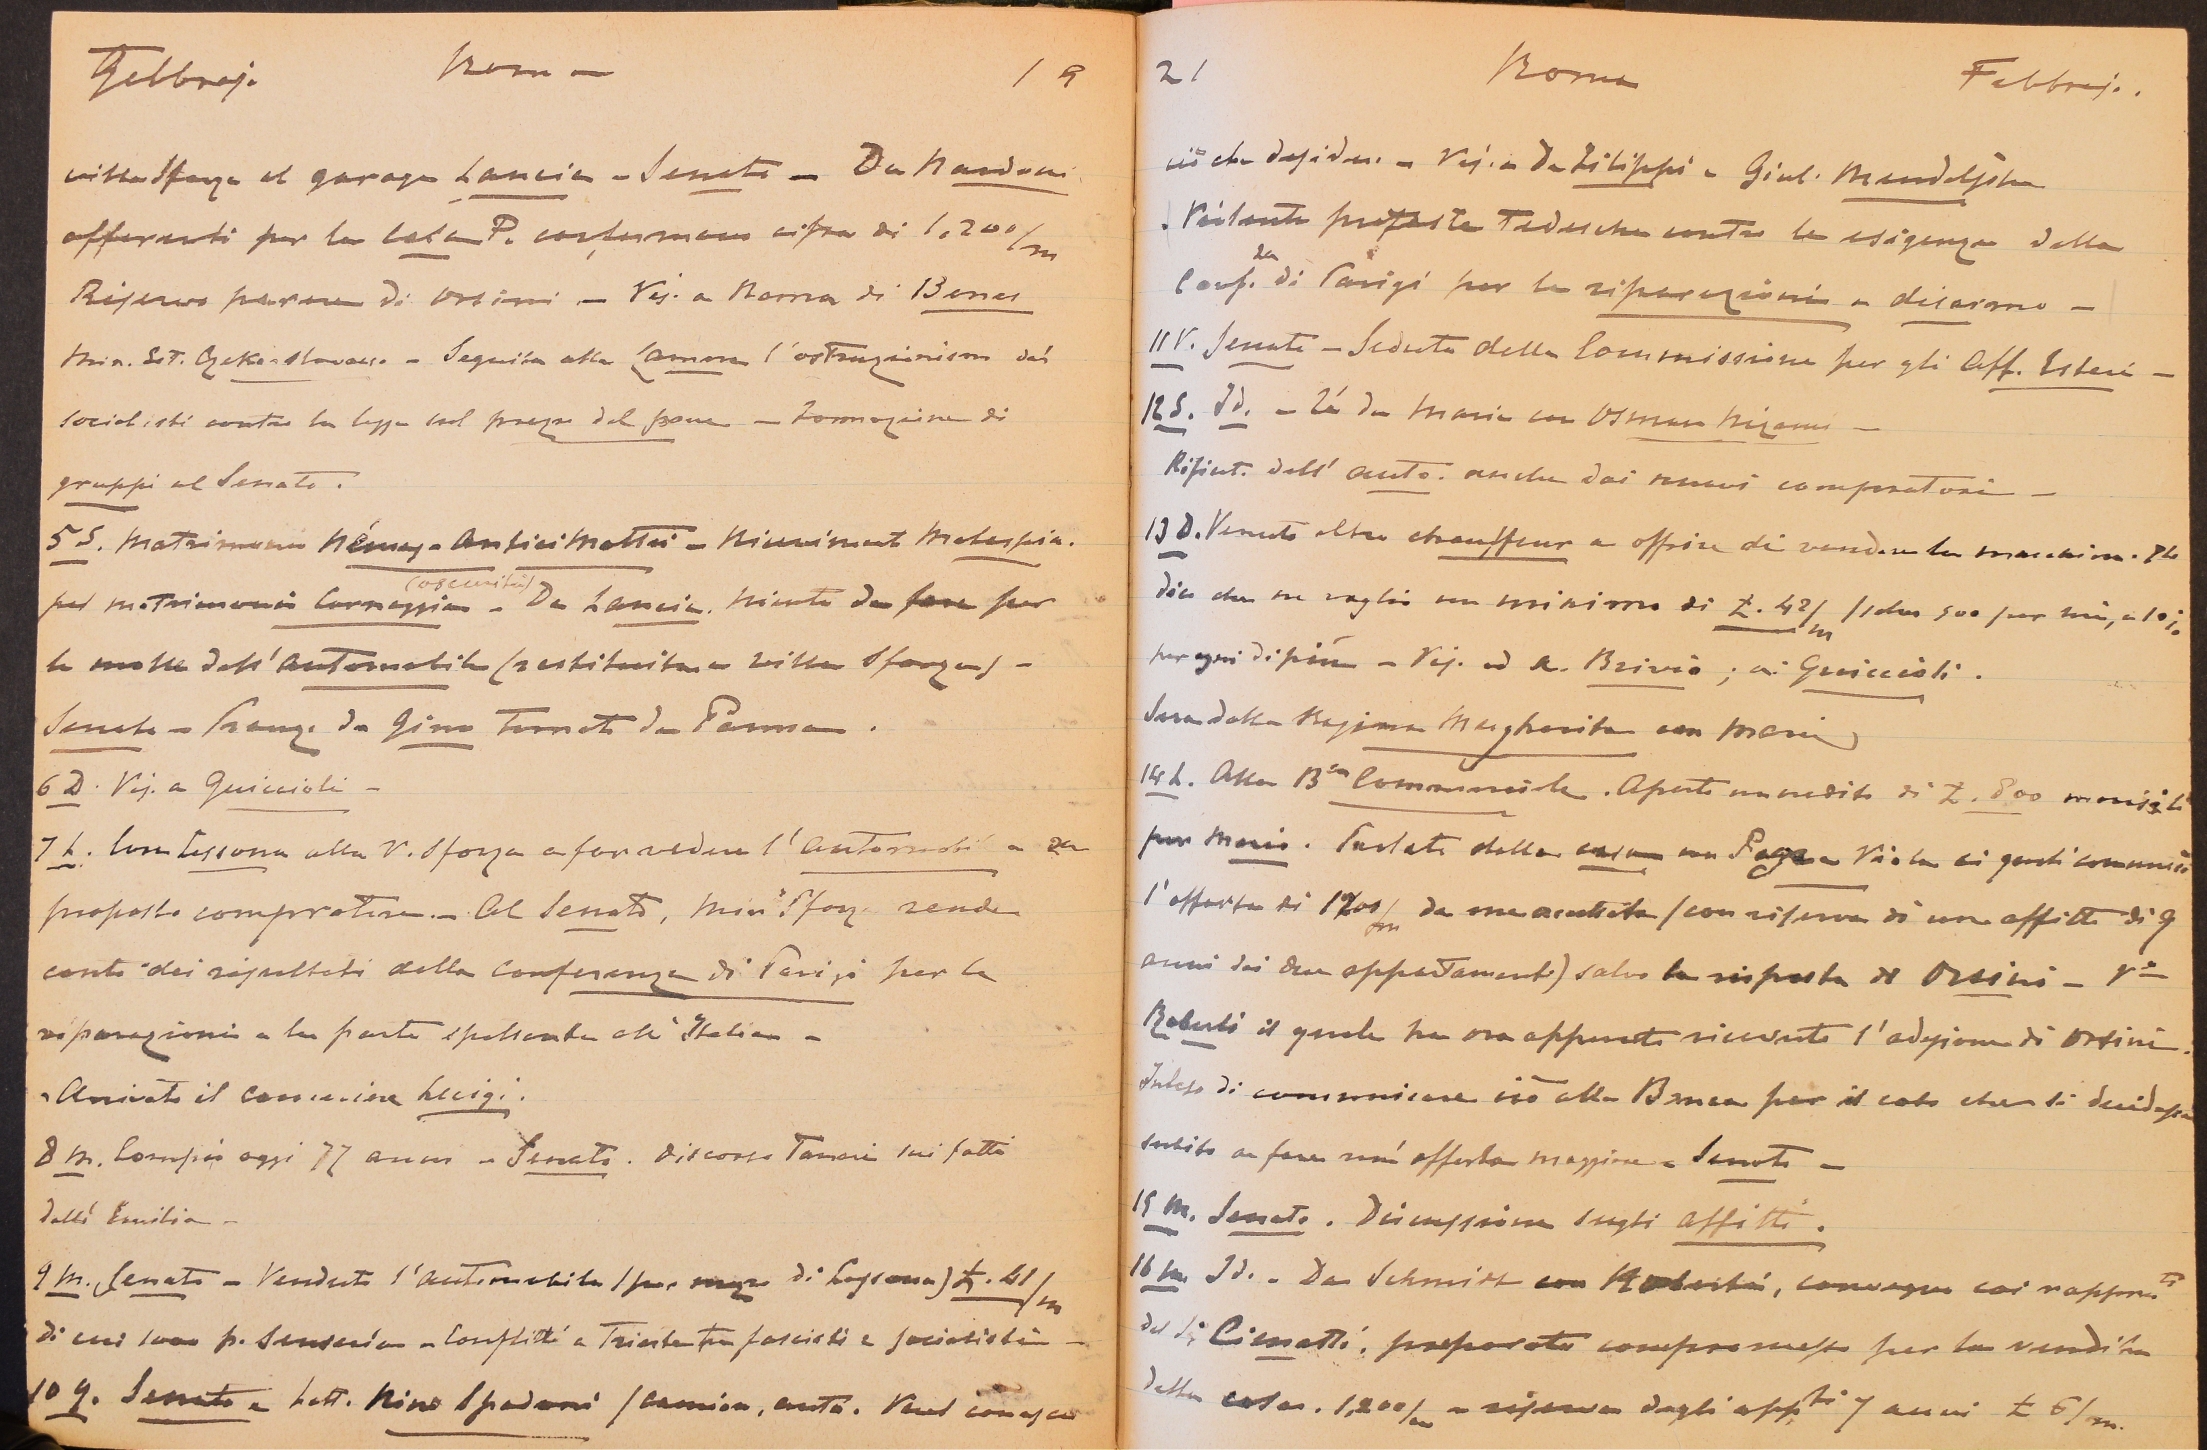 Febbrajo Roma 19
villa Sforza al garage Lancia - Senato - Da Nardoni
offerenti per la casa P. confermano cifra di 1,200/m
Riserva parere di Orsini - Vis. a Roma di Benes
Min. Est. Czeko-slovacco - Seguita alla Camera l'ostruzionismo dei
socialisti contro la legge sul prezzo del pane - Formazione di
gruppi al Senato.
5 S. Matrimonio Antici Mattei - Ricevimento Malaspina
per matrimonio Carreggia (oscurità) - Da Lancia. Niente da fare per
le molle dell'automobile (restituita a villa Sforza) -
Senato - Pranzo da Gino tornato da Parma.
6 D. Vis. a Guiccioli -
7 L. Con Lessona alla V. Sforza a far vedere l'automobile a
proposto compratore. - Al Senato, Min° Sforza rende
conto dei risultati della Conferenza di Parigi per le
riparazioni e la parte spettante all'Italia -
- Arrivato il cameriere Luigi.
8 M. Compio oggi 77 anni - Senato. Discorso Tanari sui fatti
dell'Emilia -
9 M. Senato - Venduto l'automobile (per mezzo di Lessona) £. 41/m
di cui 1000 p. senseria - Conflitti a Trieste tra fascisti e socialisti -
10 G. Senato - Lett. Nino Spadoni (camion, auto. Vuol conoscere
21 Roma Febbrajo.
ciò che desidero - Vis. a De Filippi e Giul. Mendelssohn
. Violente proteste Tedesche contro le esigenze della
Conf. da di Parigi per le riparazioni e disarmo -
11 V. Senato - Seduta della Commissione per gli Aff. Esteri -
12 S. Id. - Té da Maria con Osman Nizami -
Rifiut. dell'auto. anche dai nuovi compratori -
13 D. Venuto altro chauffeur a offrire di vendere la macchina. Gli
dico che ne voglio un minimo di £. 42/m (salvo 500 per lui, e 10%
per ogni di più - Vis. ad A. Brivio; ai Guiccioli.
Sera dalla Regina Margherita con Maria
14 L. Alla B.ca Commerciale. Aperto un credito di £. 800 mensili
per Maria. Parlato della casa con Viola ci quali comunico
l'offerta di 1200/m da me accettata (con riserva di un affitto di 9
anni dei due appartamenti) salvo la risposta di Orsini - V.o
Roberti il quale ha ora appunto ricevuto l'adesione di Orsini.
Inteso di comunicare ciò alla Banca per il caso che si decidesse
subito a fare un'offerta maggiore - Senato -
15 M. Senato. Discussione sugli affitti.
16 M. Id. - Da Schmidt con Roberti, convegno coi rappres.ti
del Sig. Cienatti, preparato compromesso per la vendita
della casa. 1,200/m - riserva degli app.ti 7 anni £ 6/m.